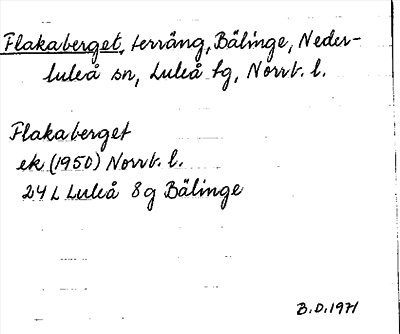 Flakaberget, terräng, Bälinge, Neder-
luleå sn, Luleå tg, Norrb. l.
Flakaberget
ek (1950) Norrb. l.
24 L Luleå 8g Bälinge
B.D. 1971